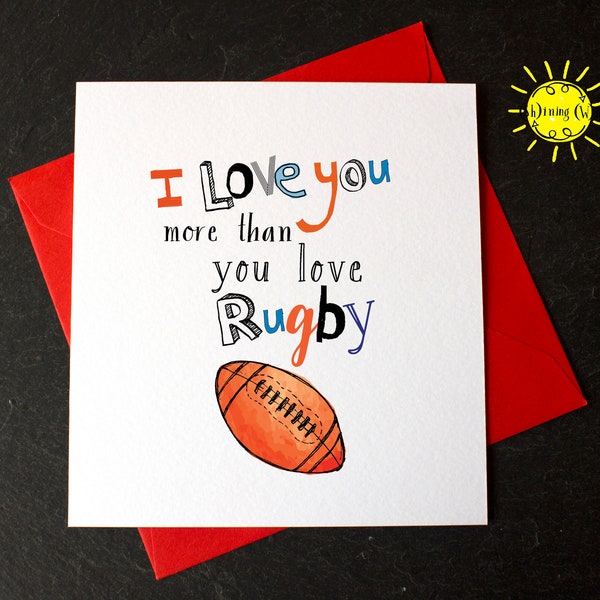 I Love you
more than
you love
Rugby
(h)ining (W